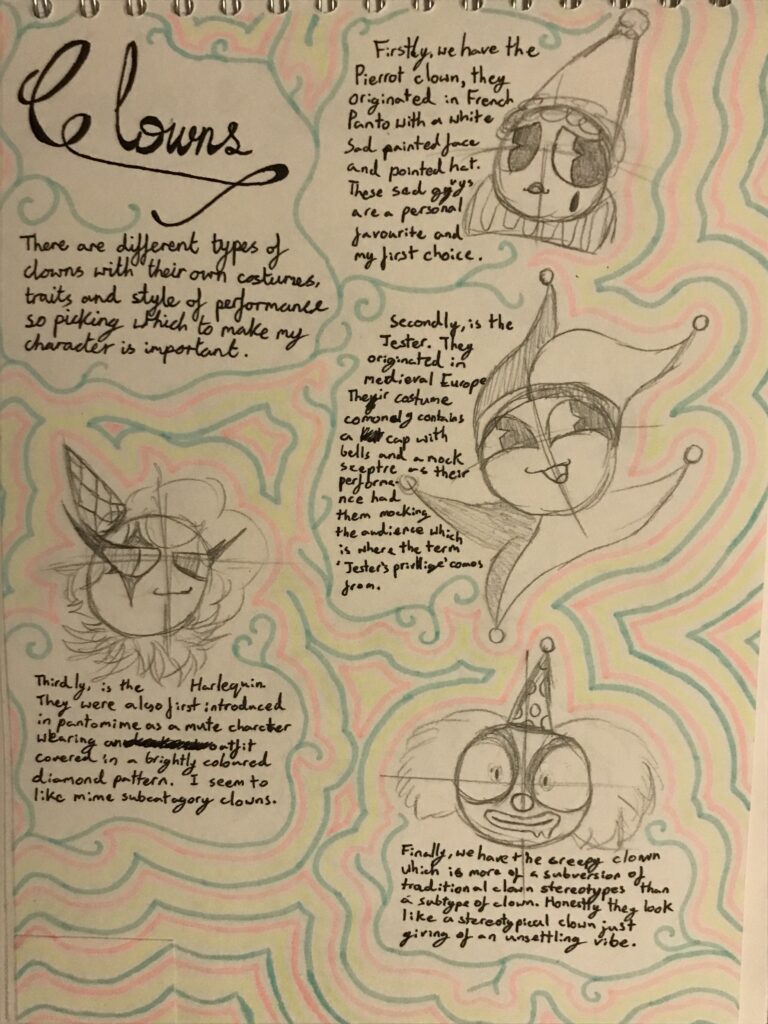 Clowns
There are different types of
clowns with their own costumes,
traits and style of performance
so picking which to make my
character is important.
Firstly, we have the
Pierrot clown, they
originated in French
Panto with a white
Sad painted face
and pointed hat.
These sad guys
are a personal
favourite and
my first choice.
Secondly, is the
Jester. They
originated in
medieval Europe
Their costume
comonly contains
a cap with
bells and a mock
sceptre as their
performa-
nce had
them mocking
the audience which
is where the term
'Jester's privilige' comes
from.
Thirdly, is the Harlequin.
They were also first introduced
in pantomime as a mute charcter
wearing outfit
covered in a brightly coloured
diamond pattern. I seem to
like mime subcatagory clowns.
Finally, we have the creepy clown
which is more of a subversion of
traditional clown stereotypes than
a subtype of clown. Honestly they look
like a stereotypical clown just
giving of an unsettling vibe.